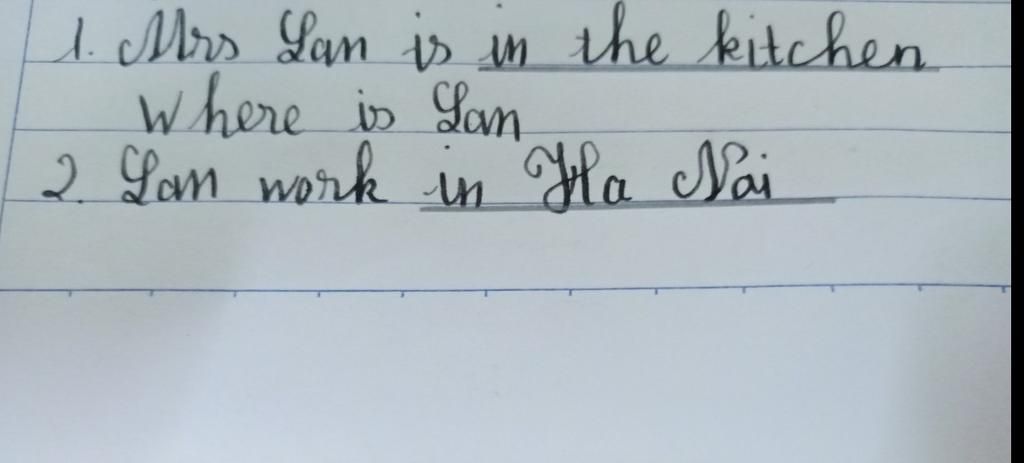 1. Mrs Lan is in the kitchen
Where is Lan
2. Lan work in Ha Nai